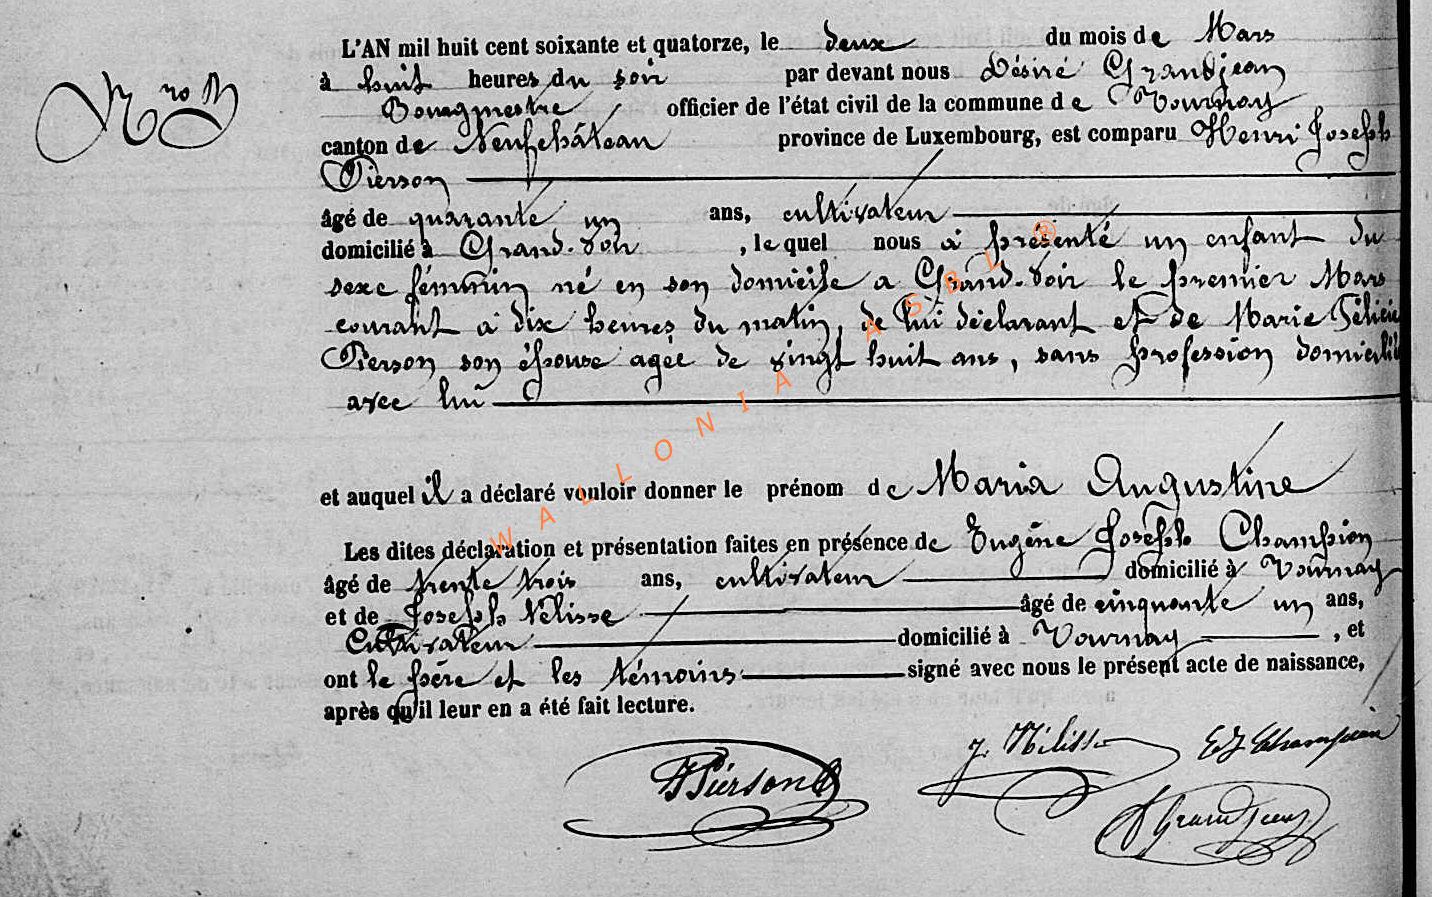 L'AN mil huit cent soixante et quatorze, le deux du mois de Mars
à huit heures du soir par devant nous Désiré Grandjean
Bourgmestre officier de l'état civil de la commune de Tournay
canton de Neufchâteau province de Luxembourg, est comparu Henri Joseph
Pierson
âgé de quarante un ans, cultivateur
domicilié à Grand-Voir, lequel nous a présenté un enfant du
sexe féminin né en son domicile a Grand-Voir le premier Mars
courant à dix heures du matin, de lui déclarant et de Marie Félicité
Pierson son épouse agée de vingt huit ans, sans profession domicilié
avec lui
et auquel il a déclaré vouloir donner le prénom de Maria Augustine
Les dites déclaration et présentation faites en présence de Eugène Joseph Champion
âgé de trente trois ans, cultivateur domicilié à Tournay
et de Joseph Nélisse âgé de cinquante un ans,
Cultivateur domicilié à Tournay, et
ont le père et les témoins signé avec nous le présent acte de naissance,
après qu'il leur en a été fait lecture.
J. Nélisse E J Champion
Pierson
Grandjean
WALLONIA ASBL ®